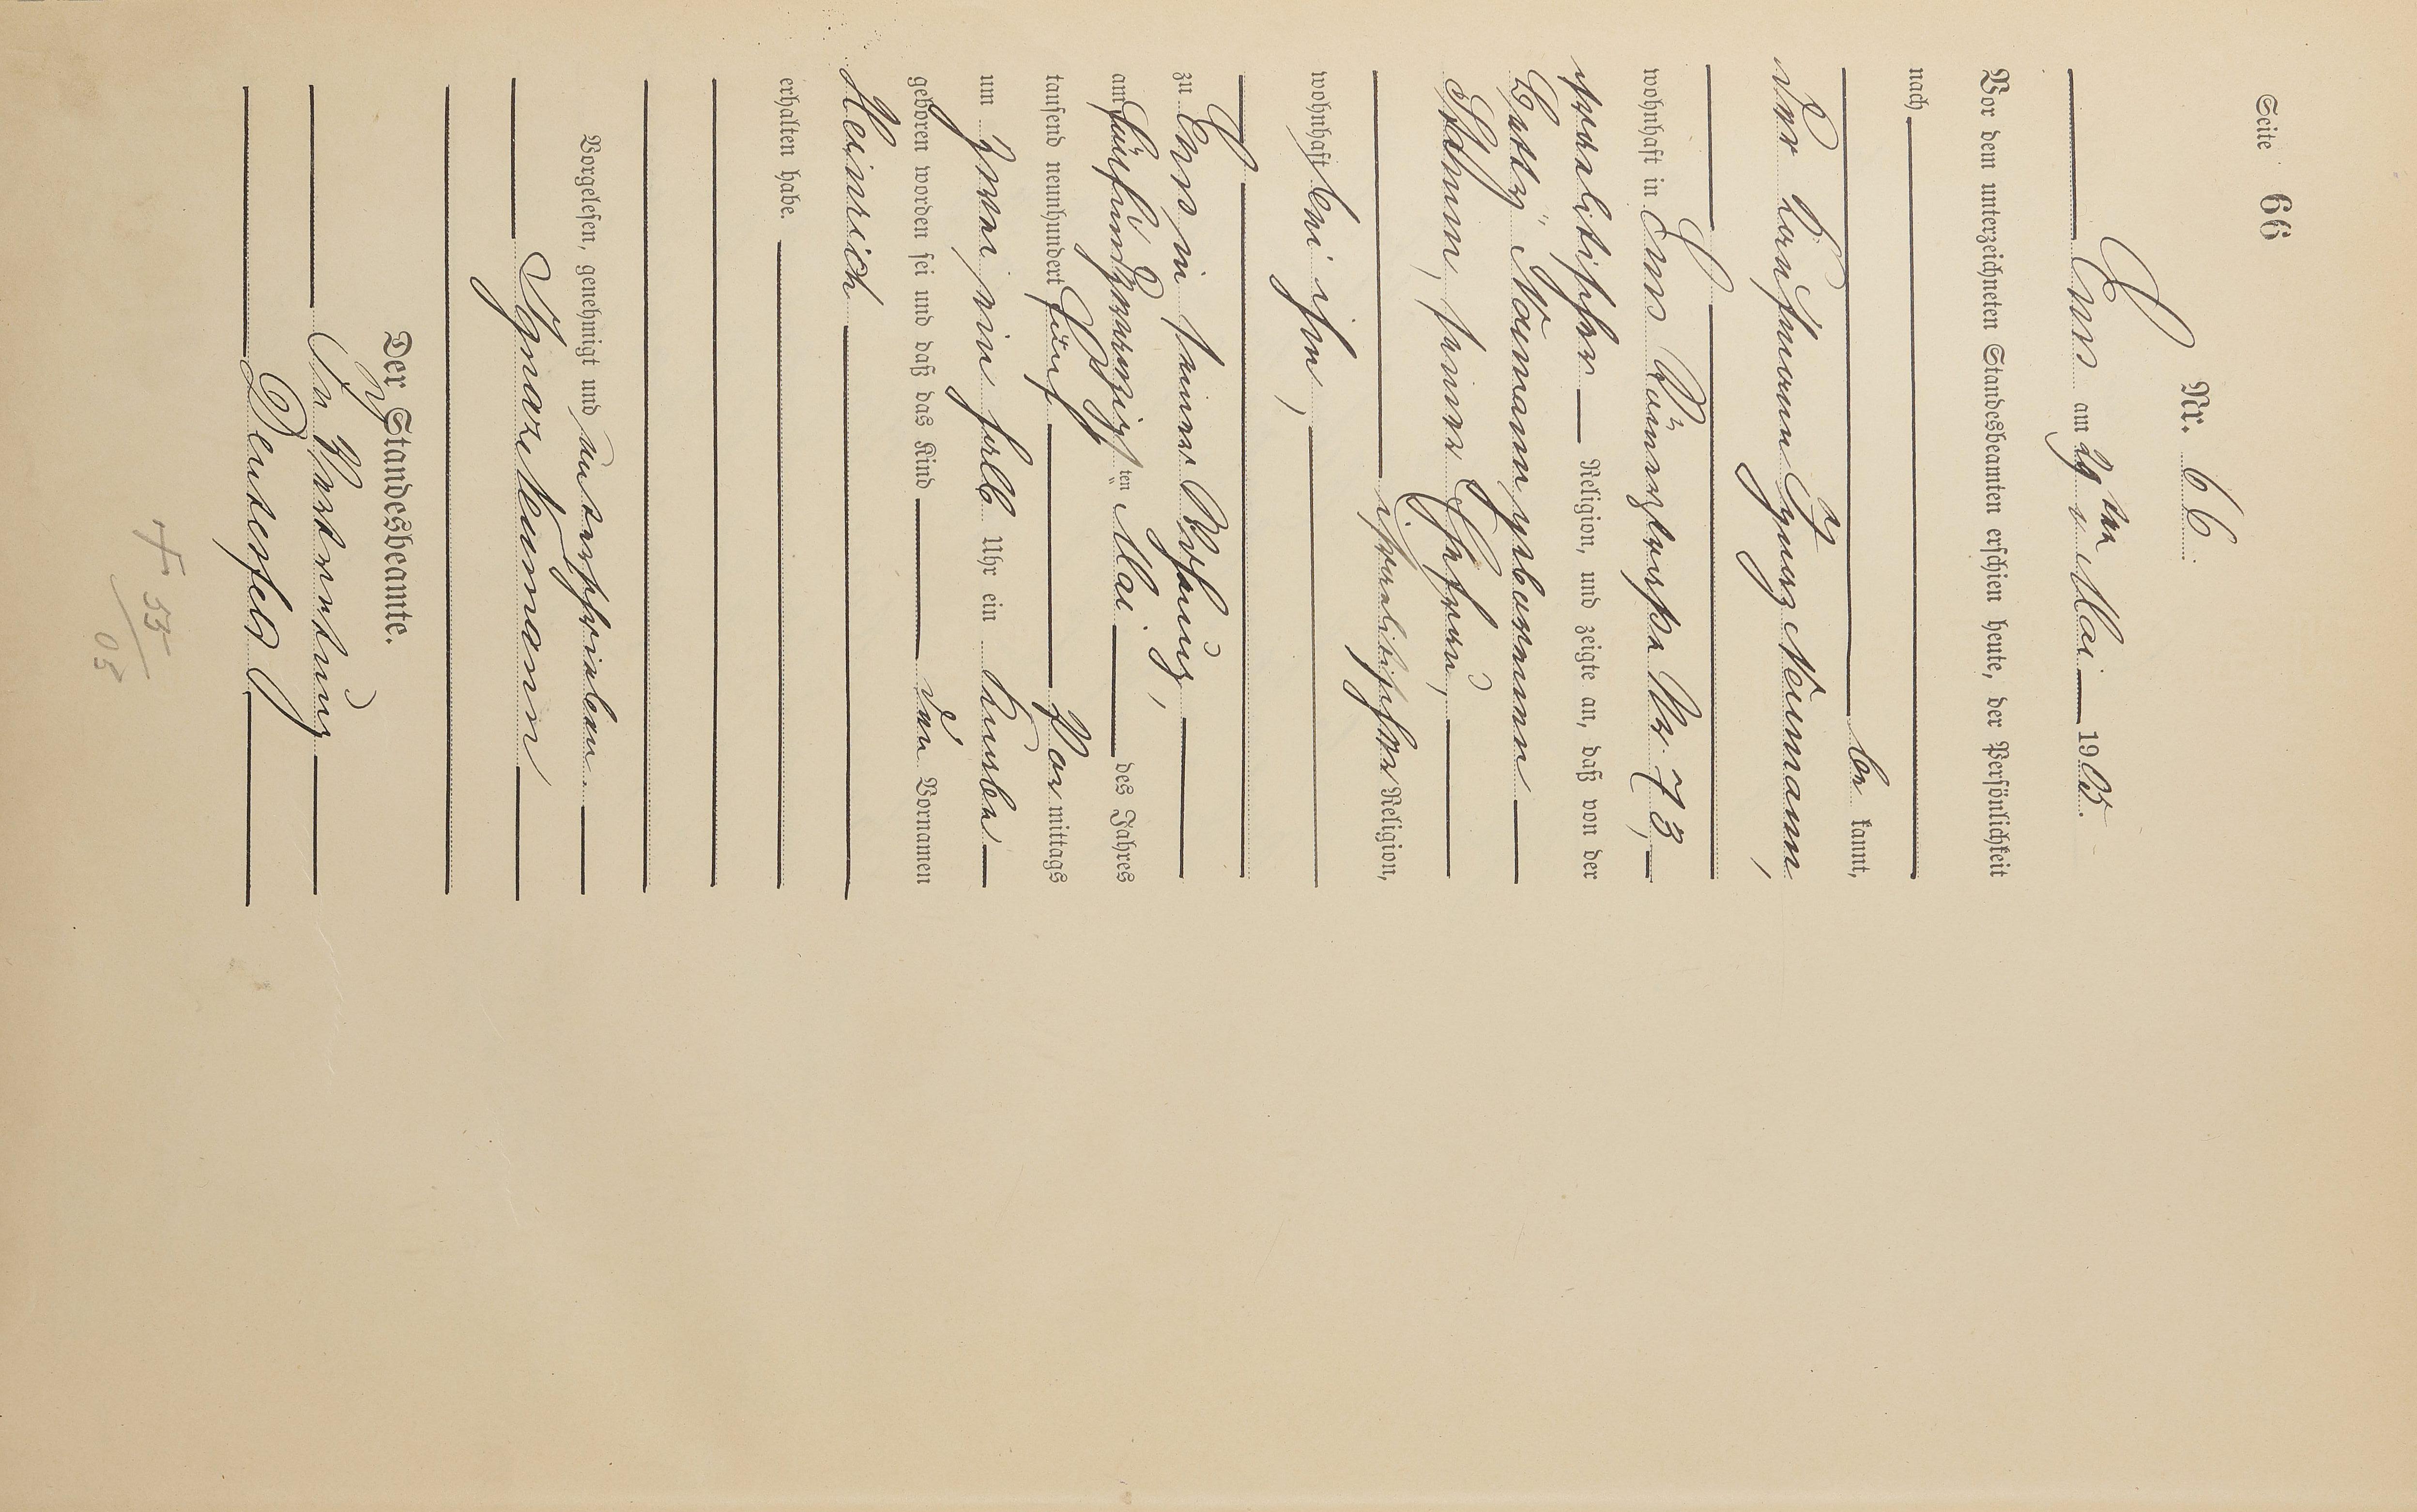 Seite 66
Nr. 66
Ems am 29ten Mai 1905.
Vor dem unterzeichneten Standesbeamten erschien heute, der Persönlichkeit
nach
be kannt,
der Kaufmann Ignaz Neumann,
wohnhaft in Ems Römerstraße Nr. 73,
israelitischer Religion, und zeigte an, daß von der
Betty Neumann geborenen
Stamm, seiner Ehefrau,
israelitischer Religion,
wohnhaft bei ihm,
zu Ems in seiner Wohnung,
am fünfundzwanzig ten Mai des Jahres
tausend neunhundert fünf Vor mittags
um zwei ein halb Uhr ein Knabe
geboren worden sei und daß das Kind den Vornamen
Heinrich
erhalten habe.
Vorgelesen, genehmigt und unterschrieben.
Ignaz Neumann
Der Standesbeamte.
In Vertretung
Deusesfeld